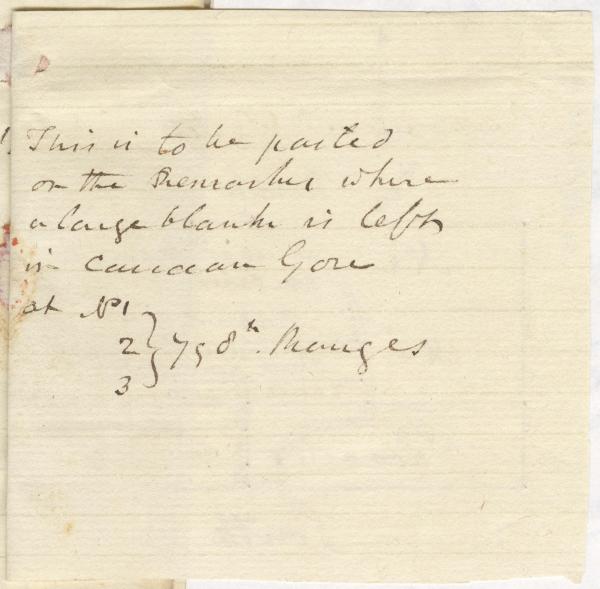 This is to be pasted
on the Remarks where
a large blank is left
in Canaan Gore
at No 1
2 } 7 & 8th. Ranges
3